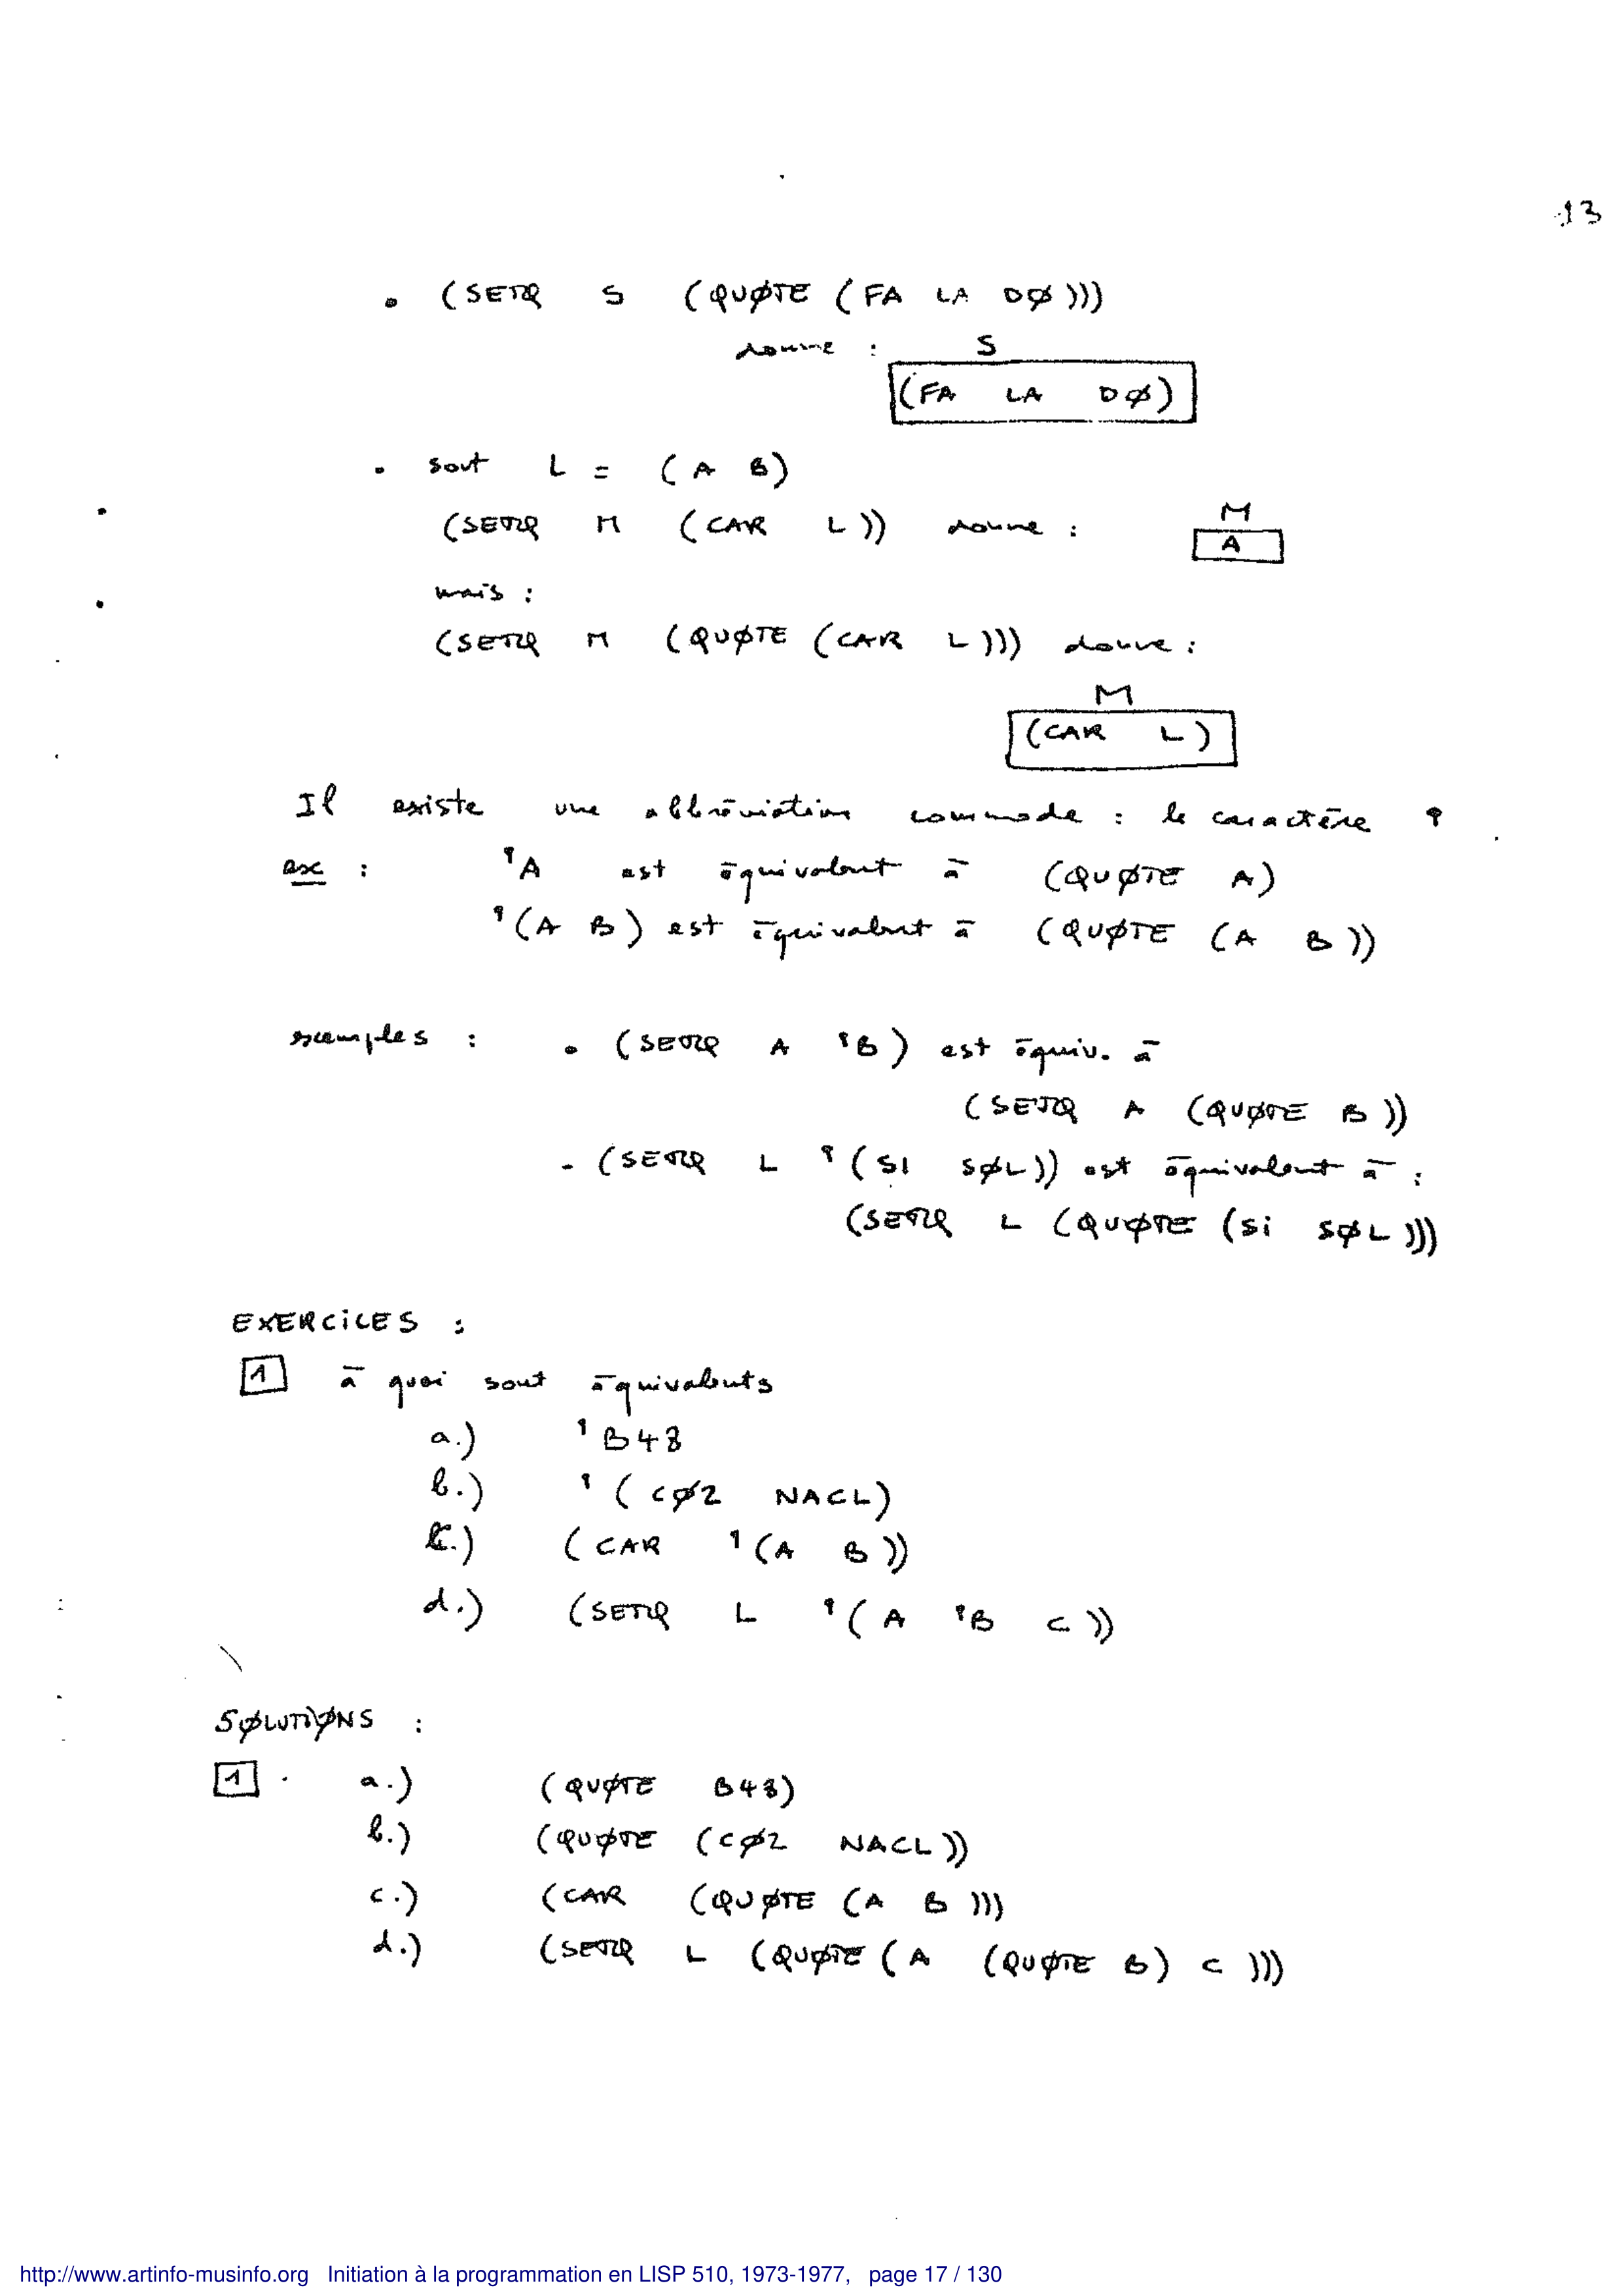 13
• (SETQ S (QUØTE (FA LA DØ)))
donne : S
(FA LA DØ)
• soit L = (A B)
(SETQ M (CAR L)) donne : M
A
mais :
(SETQ M (QUØTE (CAR L))) donne :
M
(CAR L)
Il existe une abbréviation commode : le caractère '
ex : 'A est équivalent à (QUØTE A)
'(A B) est équivalent à (QUØTE (A B))
exemples : • (SETQ A 'B) est équiv. à
(SETQ A (QUØTE B))
- (SETQ L '(SI SØL)) est équivalent à :
(SETQ L (QUØTE (Si SØL)))
EXERCiCES :
1 à quoi sont équivalents
a.) 'B48
b.) '(CØ2 NACL)
c.) (CAR '(A B))
d.) (SETQ L '(A 'B C))
SØLUTiØNS :
1 . a.) (QUØTE B48)
b.) (QUØTE (CØ2 NACL))
c.) (CAR (QUØTE (A B)))
d.) (SETQ L (QUØTE (A (QUØTE B) C)))
http://www.artinfo-musinfo.org Initiation à la programmation en LISP 510, 1973-1977, page 17 / 130